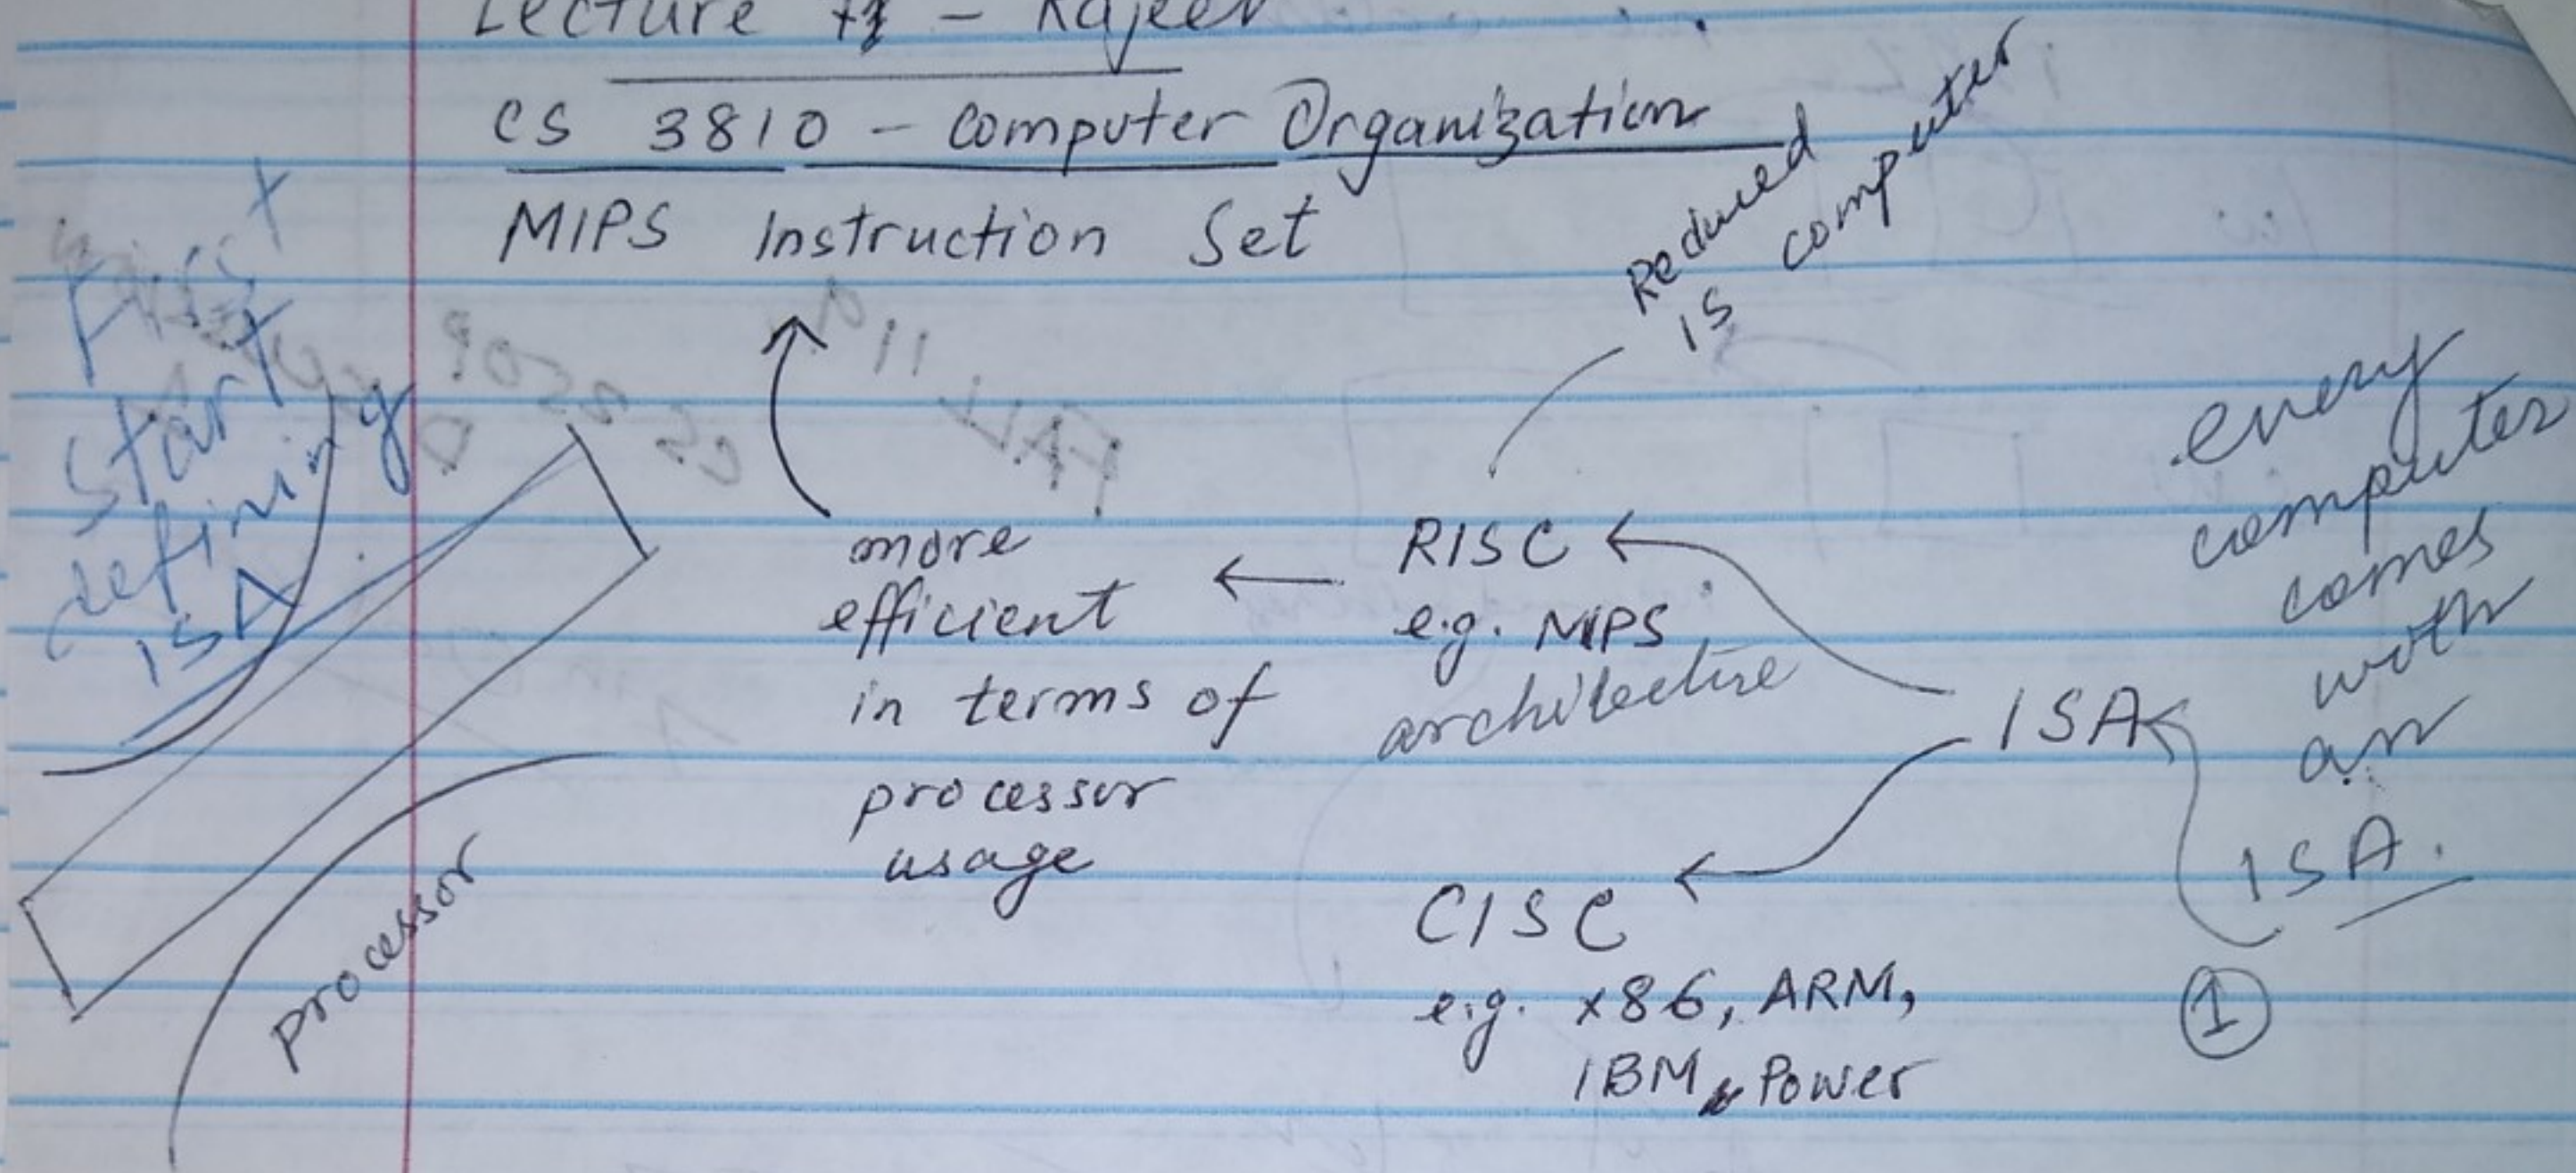 Lecture - Rajeev
CS 3810 - Computer Organization
MIPS Instruction Set
Reduced
IS computer
First
start
defining
ISA
more
efficient
in terms of
processor
usage
RISC
e.g. MIPS
architecture
ISA
every
computer
comes
with
an
ISA.
CISC
e.g. x86, ARM,
IBM Power
processor
1